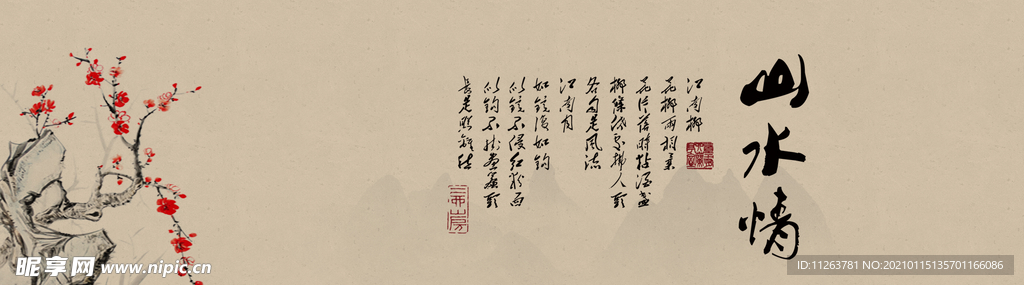 山水情
江南柳
花柳兩相柔
花片落時粘酒盞
柳條低處拂人頭
各自是風流
江南月
如鏡復如鉤
似鏡不侵紅粉面
似鉤不掛畫簾頭
長是照離愁
昵享网 www.nipic.cn
ID:11263781 NO:20210115135701166086